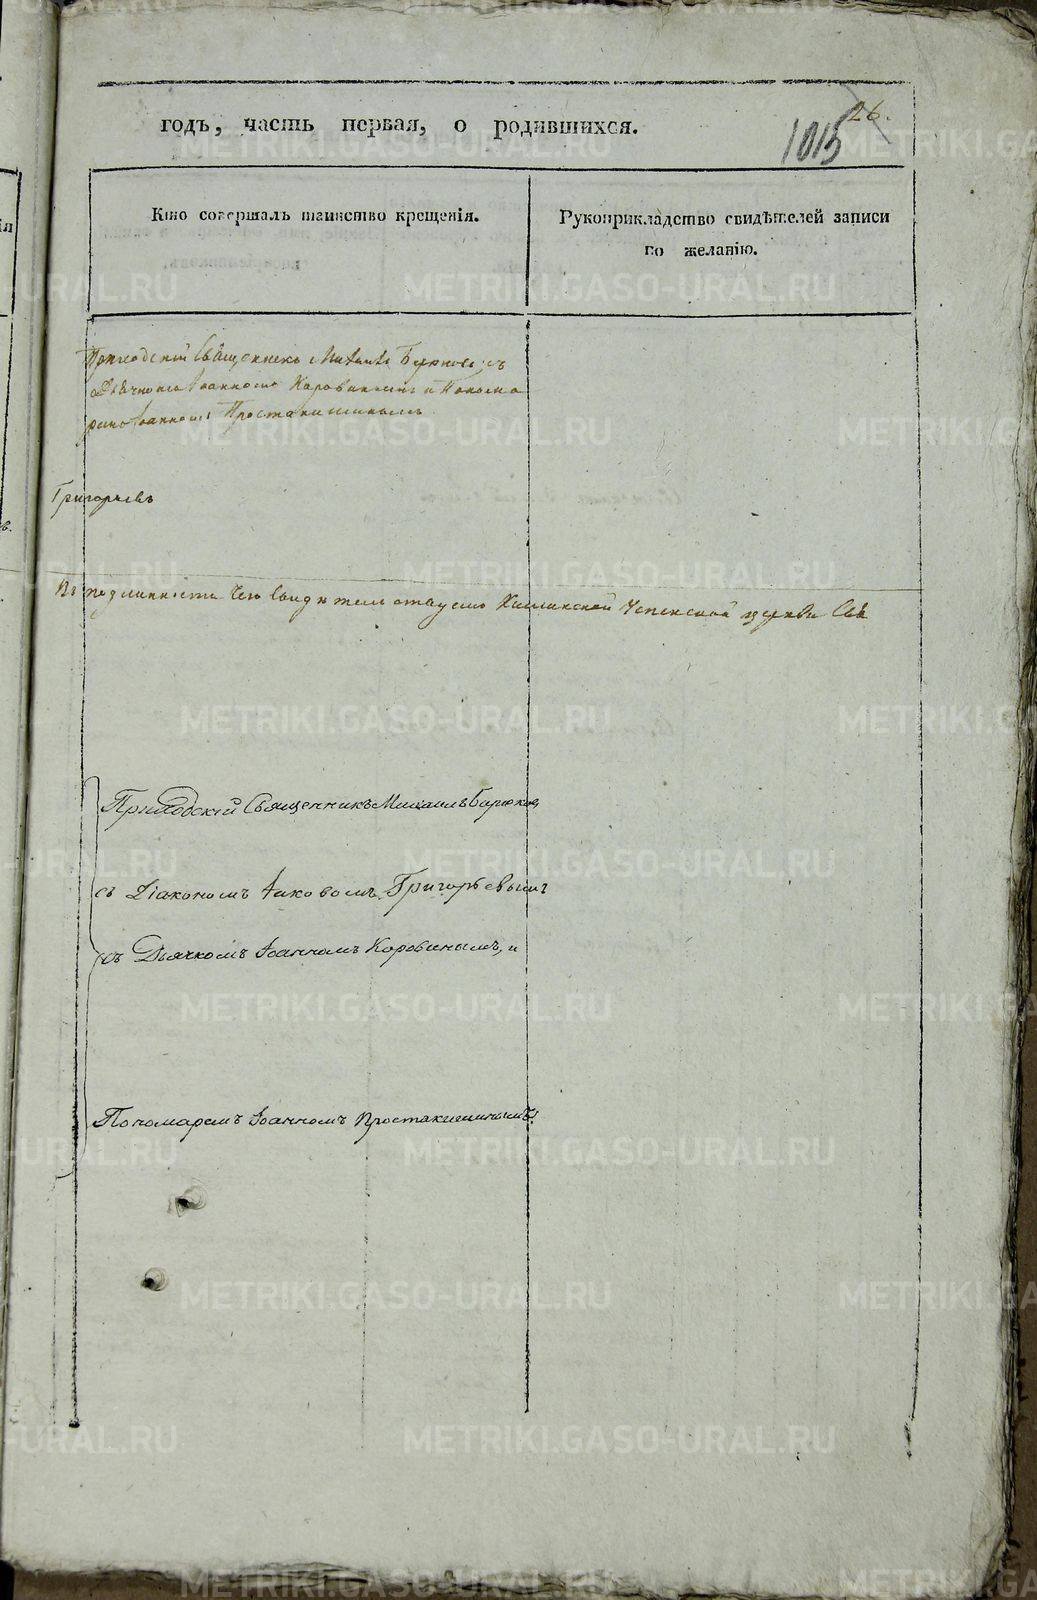 26.
1013
годъ, часть первая, о родившихся.
Кто совершалъ таинство крещенія.
Рукоприкладство свидѣтелей записи
по желанію.
Приходскій Священникъ Михаилъ съ
Дьячкомъ Іоанномъ Коровинымъ и Понома
ремъ Іоанномъ Простакишинымъ
Григорьевъ
Въ подлинности чего свидѣтельствуемъ Успенской церкви Свя
Приходскій Священникъ Михаилъ Бирюковъ
съ Діакономъ Іаковомъ Григорьевымъ
съ Дьячкомъ Іоанномъ Коровинымъ, и
Пономаремъ Іоанномъ Простакишинымъ.
METRIKI.GASO-URAL.RU